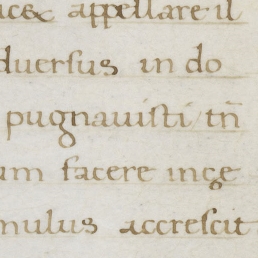 appellare il
duersus in do
pugnauisti tn̄
um facere inge
mulus accrescit